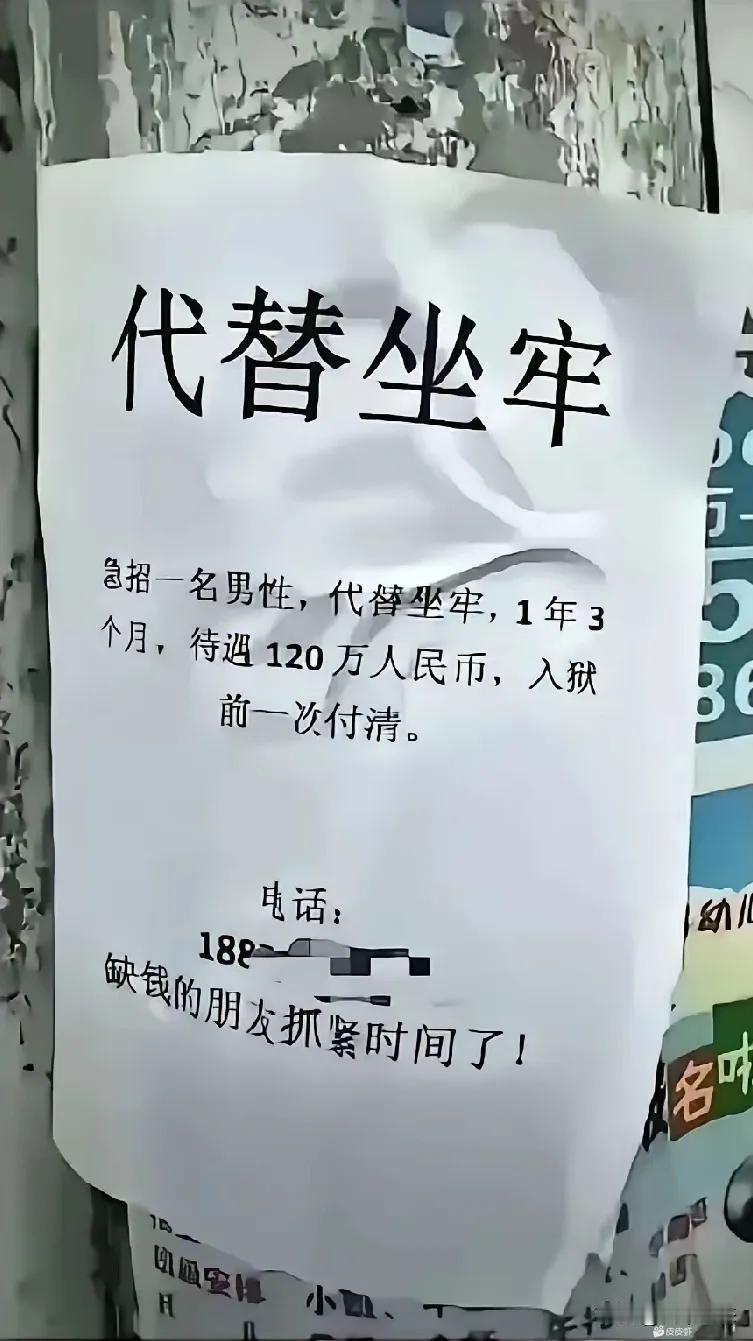 代替坐牢
急招一名男性，代替坐牢，1年3
个月，待遇120万人民币，入狱
前一次付清。
电话：
188
缺钱的朋友抓紧时间了！
幼儿
名
86
5
皮皮虾